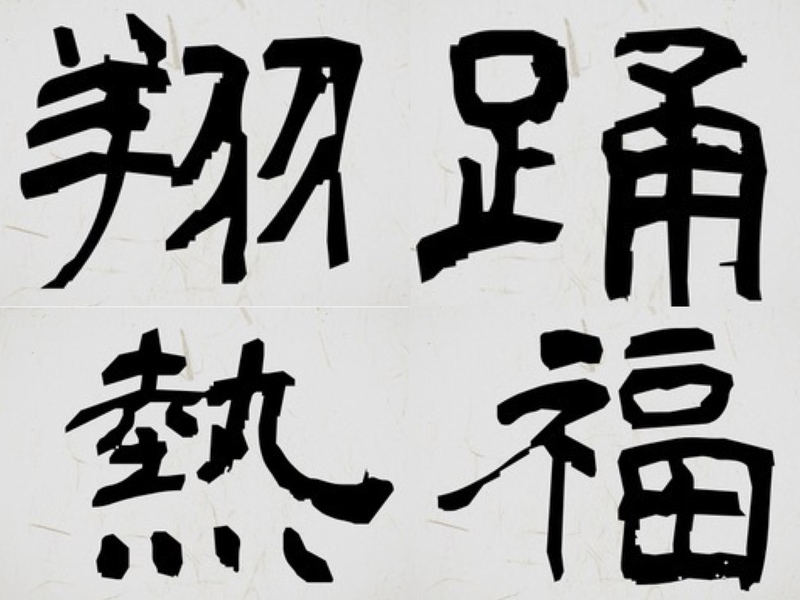 翔踊
熱福